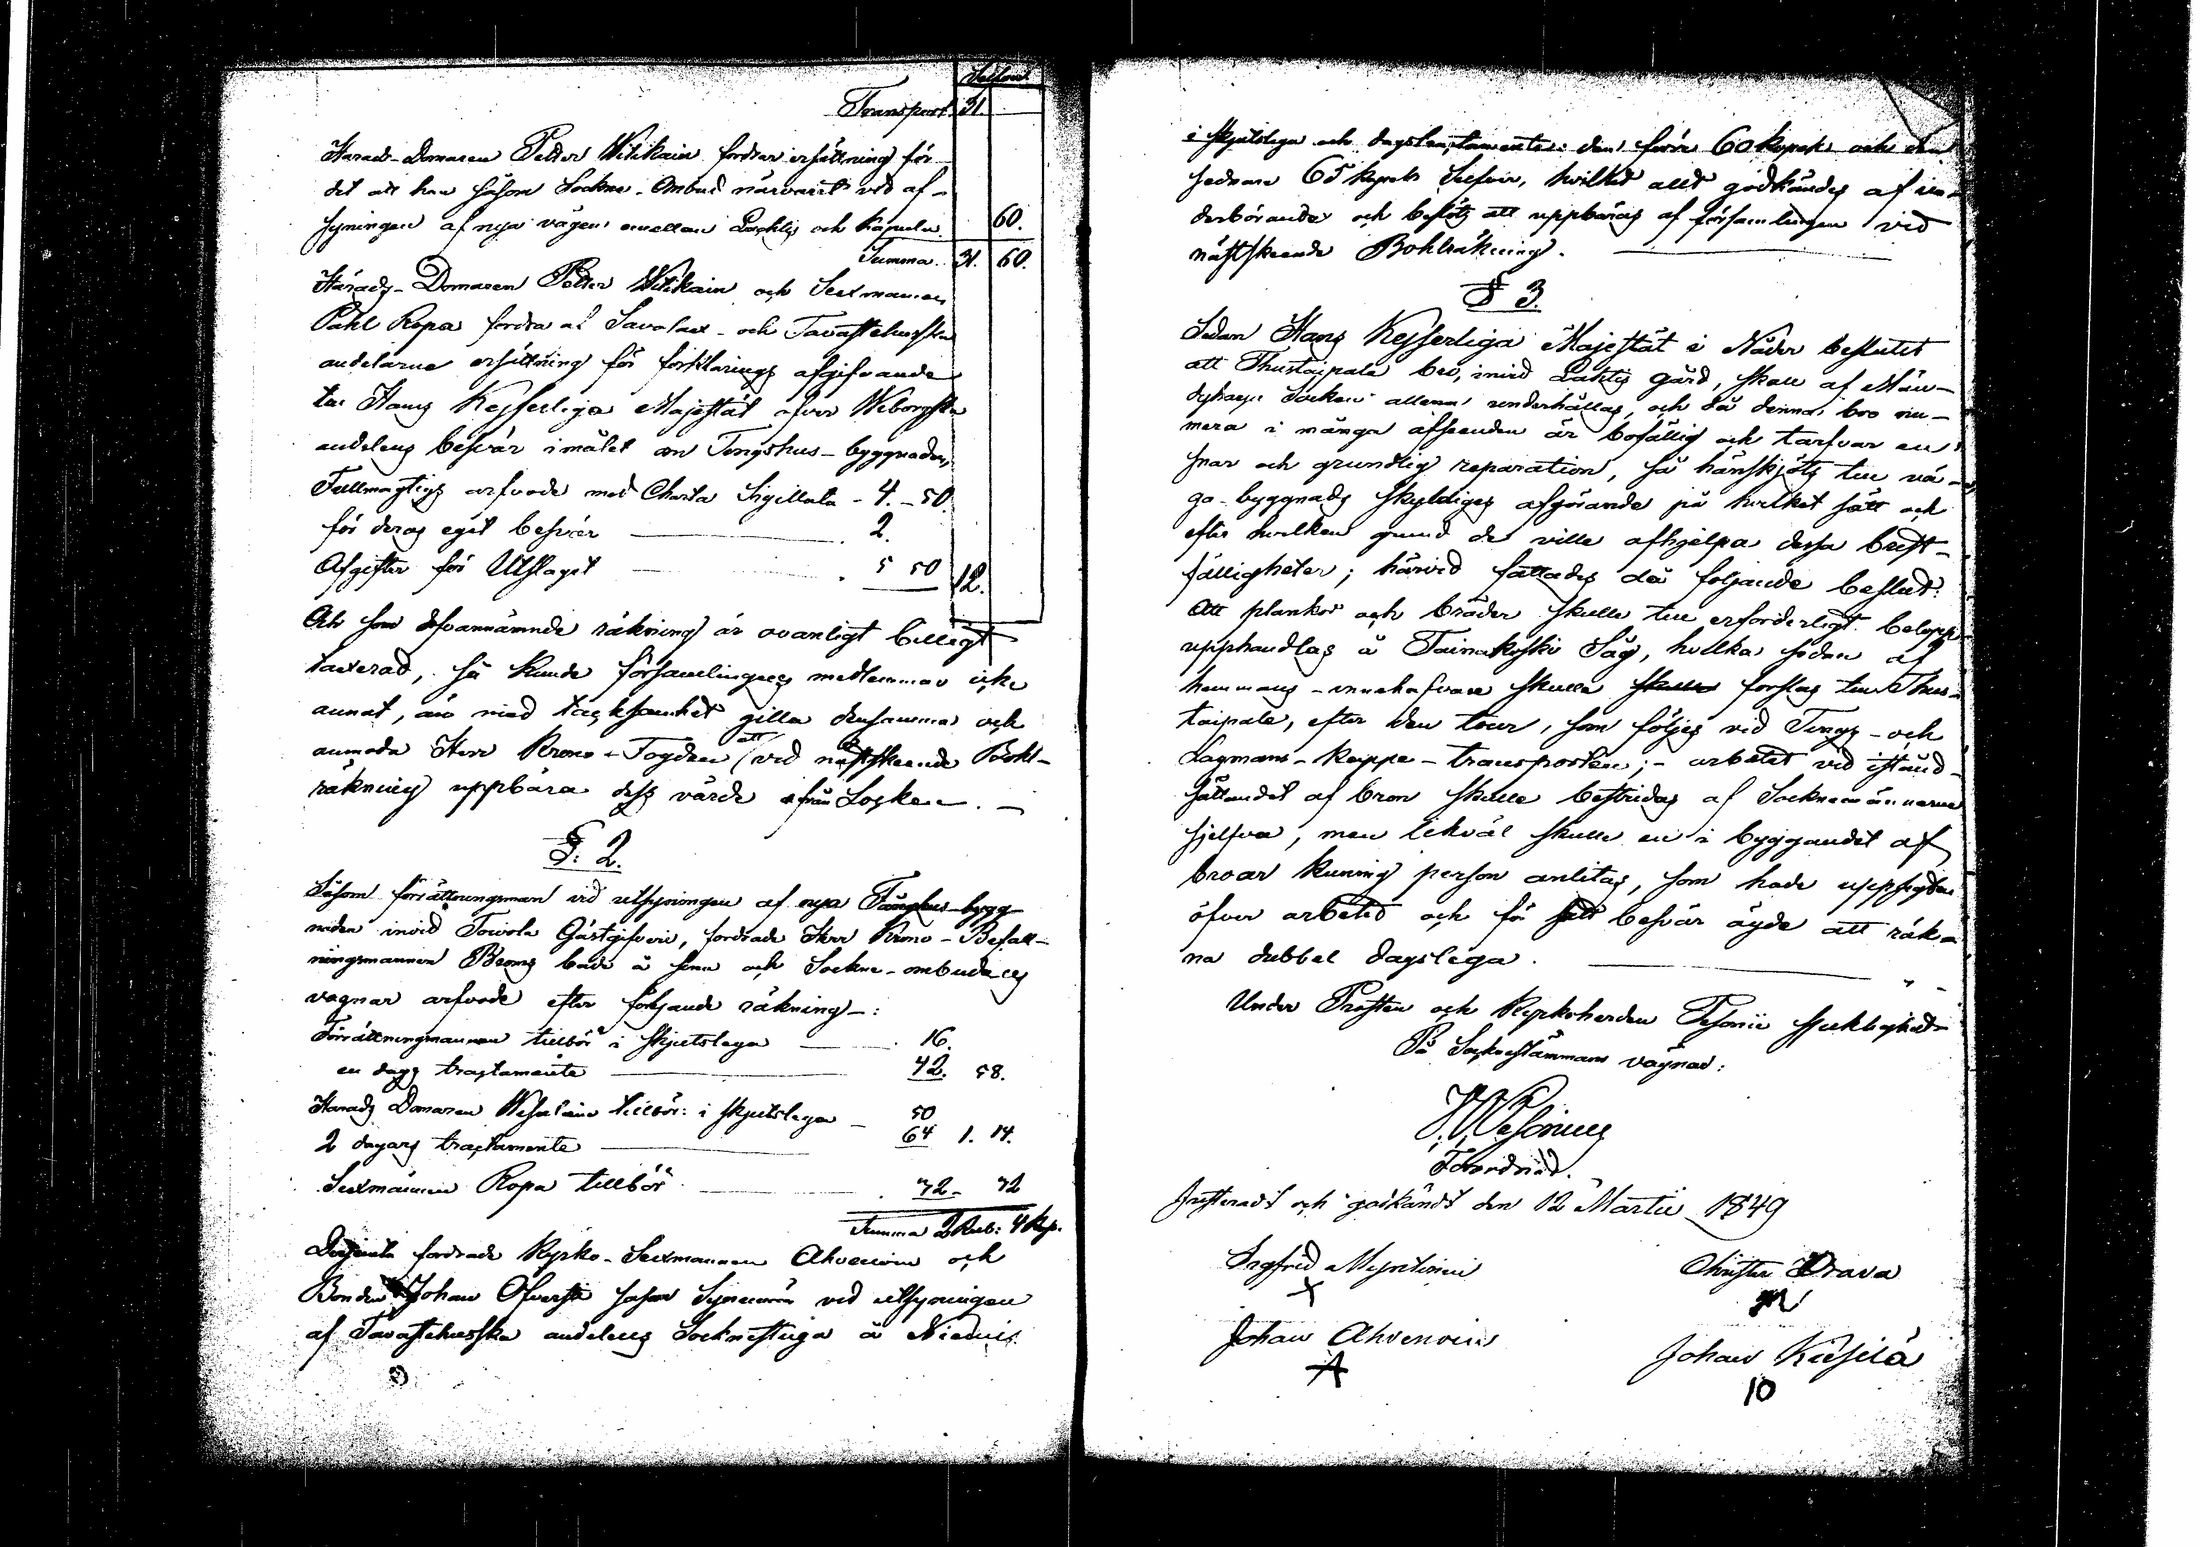 Silfver.
Transport 31.
Härads-Domaren Petter Witikain fordrar ersättning för
det att han såsom Sockne-Ombud närvarit vid af-
syningen af nya vägen emellan Lachtis och Kapula. 60.
Summa.. 31. 60.
Härads-Domaren Petter Witikain och Sexmannen
Påhl Ropa fordra af Savolax- och Tavastehusska
andelarne ersättning för förklarings afgifvande
till Hans Kejserliga Majestät öfver Wiborgska
andelens besvär i målet om Tingshus-byggnaden,
Fullmägtigs arfvode med Charta Sigillata - 4. - 50.
för deras eget besvär 2.
Afgifter för Utslaget 5 50 12.
Och som ofvannämnde räkning är ovanligt billigt
taxerad, så kunde församlingens medlemmar icke
annat, än med tacksamhet gilla densamma och
anmoda Herr Krono-Fogden att vid nästskeende Bohl-
räkning uppbära dess värde från Socken. -
§. 2.
Såsom förrättningsman vid utsyningen af nya Tingshus-bygg
naden invid Towola Gästgifveri, fordrade Herr Krono-Befall-
ningsmannen Broms både å sina och Sockne-ombudens
vägnar arfvode efter följande räkning-:
Förrättningmannen tillbör i skjutslega 16.
en dags tractamente 42. 58.
Härads Domaren Wesalain tillbör: i skjutslega - 50
2 dagars tractamente 64 1. 14.
Sexmannen Ropa tillbör 32 - 32
Summa 2 Rub: 4 Kop.
fordrade Kyrko-Sexmannen Ahvenain och
Bonden Johan Ofversti såsom Synemän vid utsyningen
af Tavastehusska andelens Socknestuga å Niemis
i skjutslega och dagstractamente: den förre 60 kopek och den
sednare 65 kopek Silfver, hvilket allt godkändes af ve-
derbörande och beslöts att uppbäras af församlingen vid
nästskeende Bohlräkning.
§ 3.
Sedan Hans Kejserliga Majestät i Nåder beslutit
att Thustaipale bro, invid Lachtis gård, skall af Män-
dyharju Socken allena underhållas, och då denna bro nu-
mera i många afseenden är bofällig och tarfvar en
snar och grundlig reparation, så hänskjöts till vä-
ga-byggnads skyldiges afgörande på hvilket sätt och
efter hvilken grund de ville afhjelpa dessa brist-
fälligheter; härvid fattades då följande beslut:
Att plankor och bräder skulle till erforderligt belopp
upphandlas å Tainakoski Såg, hvilka sedan af
hemmans-innehafvare skulle forslas till Thus-
taipale, efter den tour, som följes vid Tings- och
Lagmans-kappe-transporten; - arbetet vid istånd-
sättandet af bron skulle bestridas af Socknemännerne
sjelfva, men likväl skulle en i byggandet af
broar kunnig person anlitas, som hade uppsigten
öfver arbetet och för sitt besvär ägde att räk-
na dubbel dagslega.
Under Prosten och Kyrkoherden Fesonii sjuklighet
På Sockenstämmans vägnar:
Ordförand.
Justeradt och godkändt den 12 Martii 1849
Sigfrid
X
Christer Orava
Johan Ahvenain
A
Johan Kiesilä
10